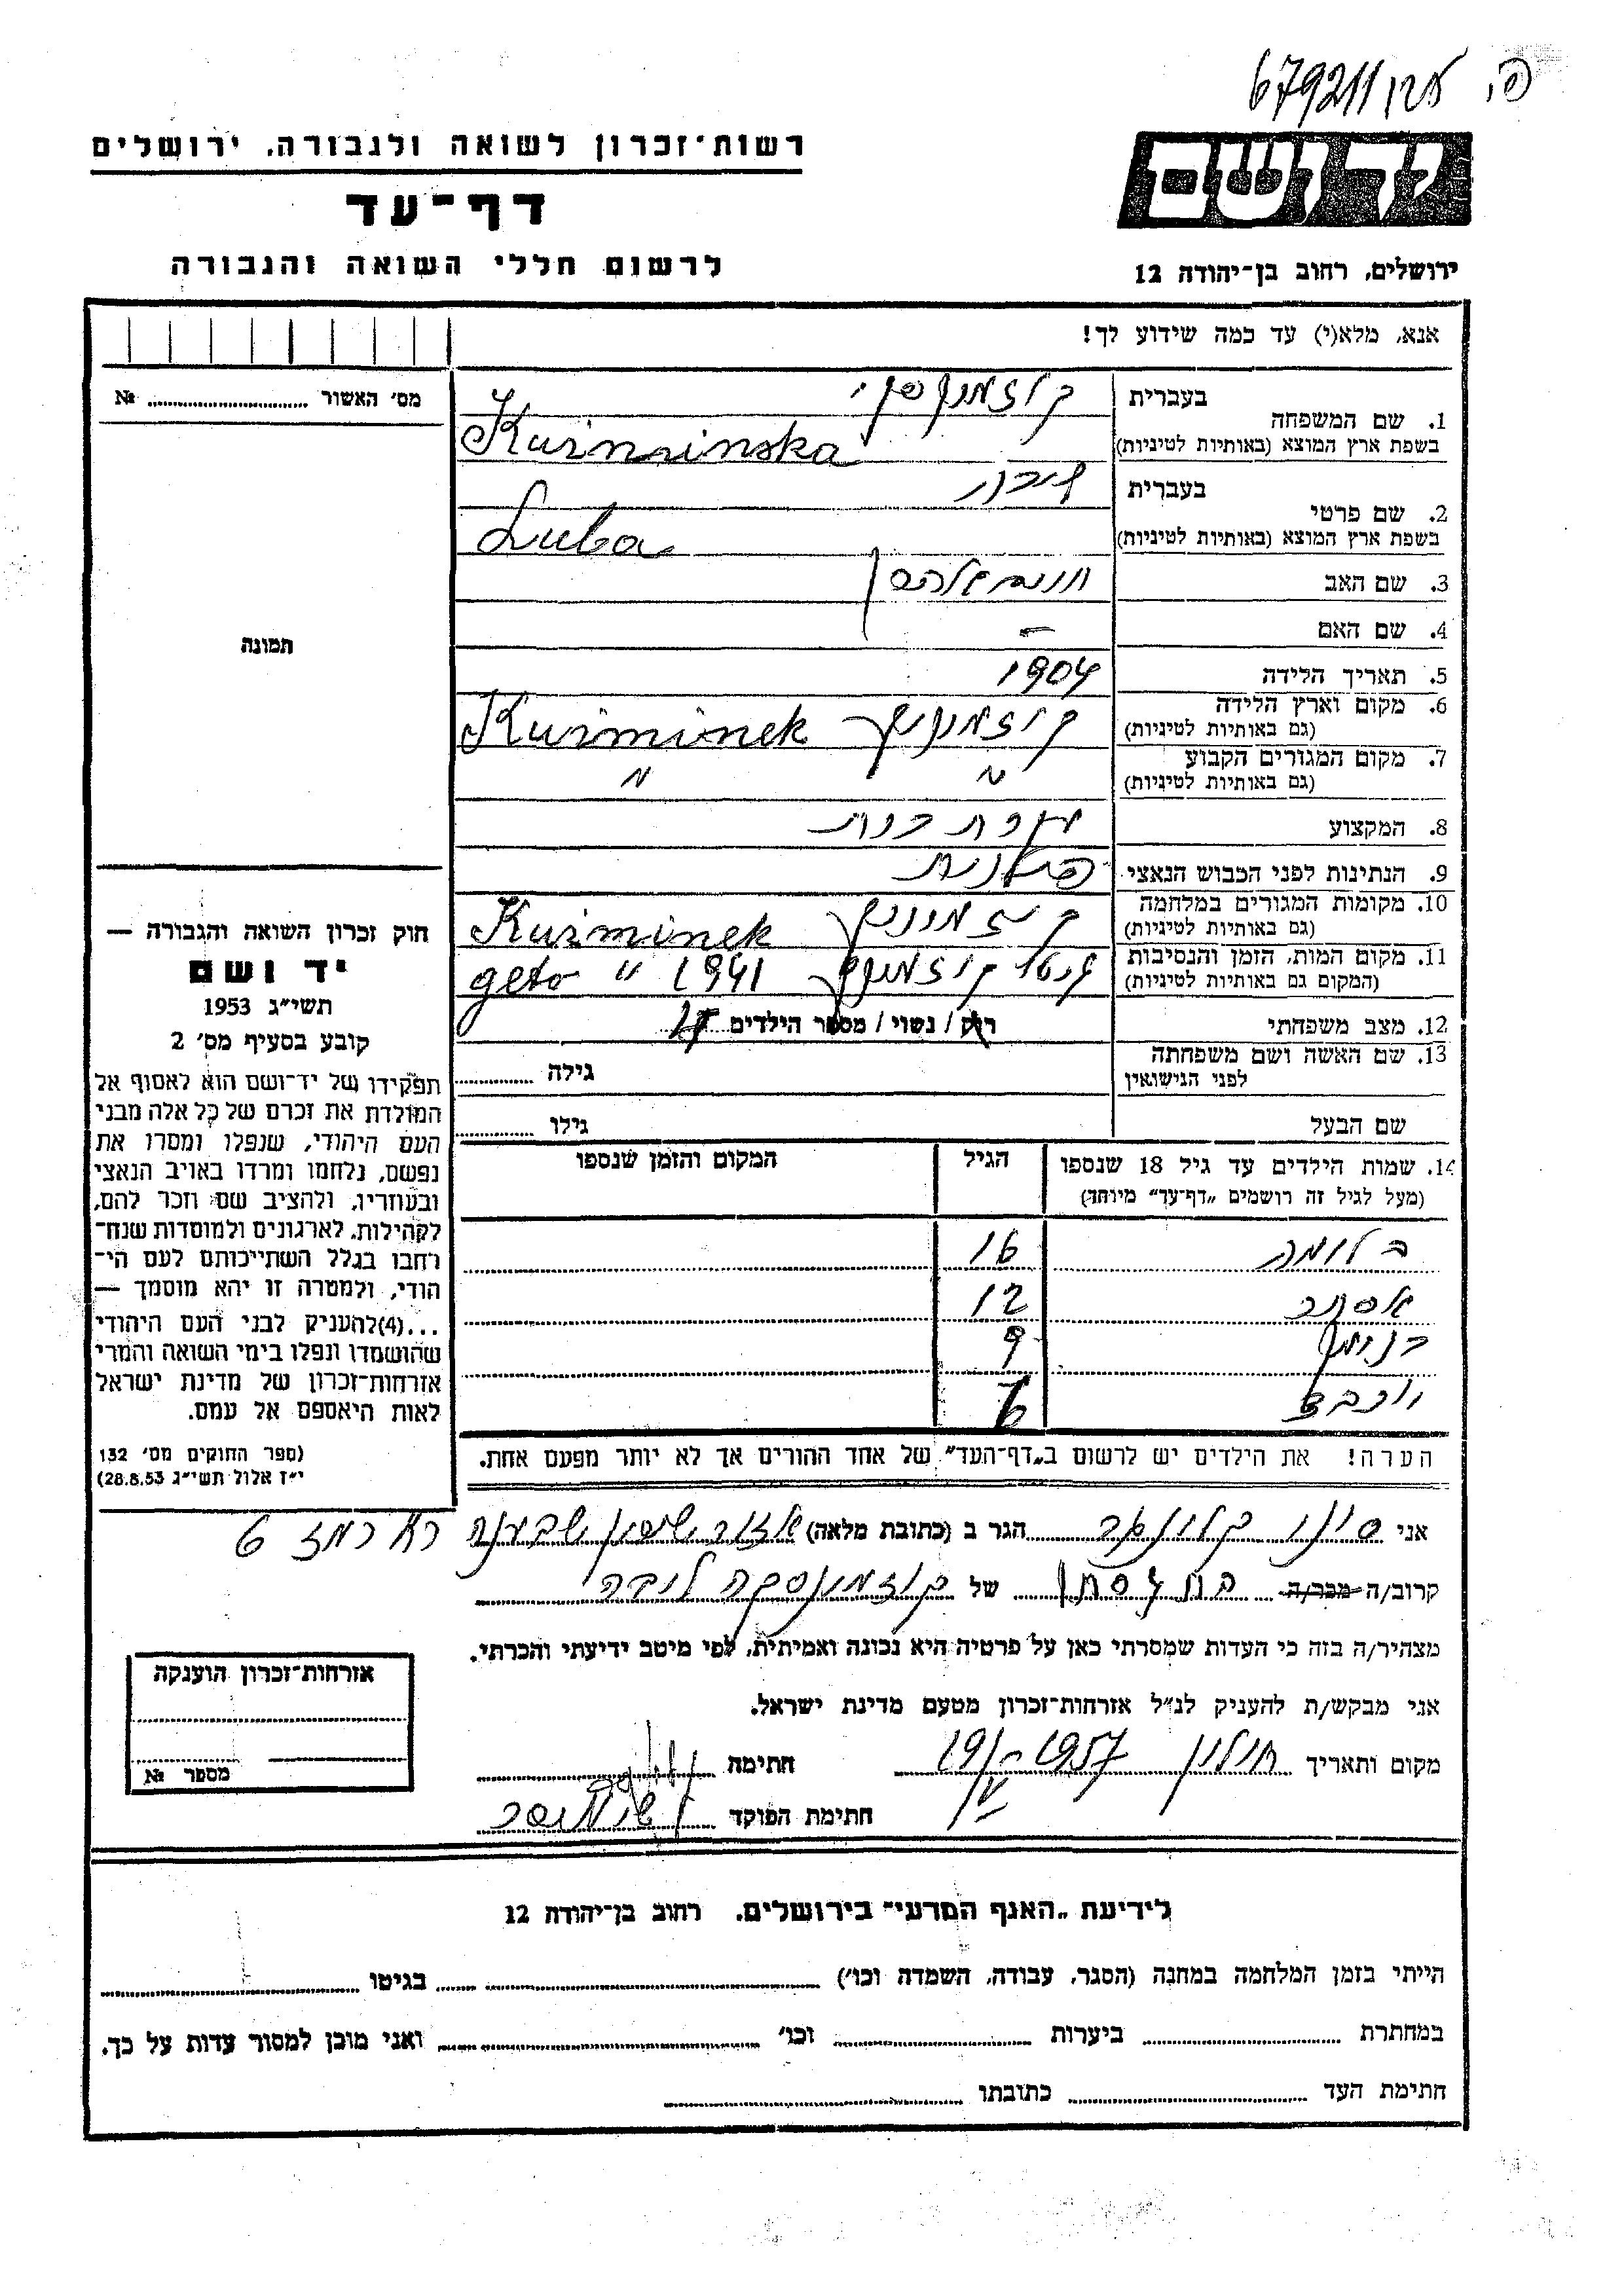 679211
יד ושם
רשות־זכרון לשואה ולגבורה, ירושלים
דף־עד
לרשום חללי השואה והגבורה
ירושלים, רחוב בן־יהודה 12
אנא, מלא(י) עד כמה שידוע לך!
מס' האשור № 
1. שם המשפחה בעברית
בשפת ארץ המוצא (באותיות לטיניות) Kuźminska
2. שם פרטי בעברית
בשפת ארץ המוצא (באותיות לטיניות) Luba
3. שם האב
4. שם האם —
5. תאריך הלידה 1904
6. מקום וארץ הלידה Kuźminek
(גם באותיות לטיניות)
7. מקום המגורים הקבוע " "
(גם באותיות לטיניות)
8. המקצוע עקרת בית
9. הנתינות לפני הכבוש הנאצי פולנית
10. מקומות המגורים במלחמה Kuźminek
(גם באותיות לטיניות)
11. מקום המות, הזמן והנסיבות 1941 " geto
(המקום גם באותיות לטיניות)
12. מצב משפחתי רווק / נשוי / מספר הילדים
13. שם האשה ושם משפחתה גילה
לפני הנישואין
שם הבעל גילו
14. שמות הילדים עד גיל 18 שנספו הגיל המקום והזמן שנספו
(מעל לגיל זה רושמים "דף־עד" מיוחד)
בלומה 16
אסתר 12
בנימין 9
6
הערה! את הילדים יש לרשום ב"דף־העד" של אחד ההורים אך לא יותר מפעם אחת.
תמונה
חוק זכרון השואה והגבורה —
יד ושם
תשי"ג 1953
קובע בסעיף מס' 2
תפקידו של יד־ושם הוא לאסוף אל
המולדת את זכרם של כל אלה מבני
העם היהודי, שנפלו ומסרו את
נפשם, נלחמו ומרדו באויב הנאצי
ובעוזריו, ולהציב שם וזכר להם,
לקהילות, לארגונים ולמוסדות שנח־
רבו בגלל השתייכותם לעם הי־
הודי, ולמטרה זו יהא מוסמך —
...(4)להעניק לבני העם היהודי
שהושמדו ונפלו בימי השואה והמרי
אזרחות־זכרון של מדינת ישראל
לאות היאספם אל עמם.
(ספר החוקים מס' 132
י"ז אלול תשי"ג 28.8.53)
אני הגר ב (כתובת מלאה) 6
קרוב/ה מכר/ה של קוזמינסקה ליבה
מצהיר/ה בזה כי העדות שמסרתי כאן על פרטיה היא נכונה ואמיתית, לפי מיטב ידיעתי והכרתי.
אני מבקש/ת להעניק לנ"ל אזרחות־זכרון מטעם מדינת ישראל.
מקום ותאריך חולון 1957 חתימה
חתימת הפוקד
אזרחות־זכרון הוענקה
מספר №
לידיעת "האגף המדעי" בירושלים, רחוב בן־יהודה 12
הייתי בזמן המלחמה במחנה (הסגר, עבודה, השמדה וכו') בגיטו
במחתרת ביערות וכו' ואני מוכן למסור עדות על כך.
חתימת העד כתובתו